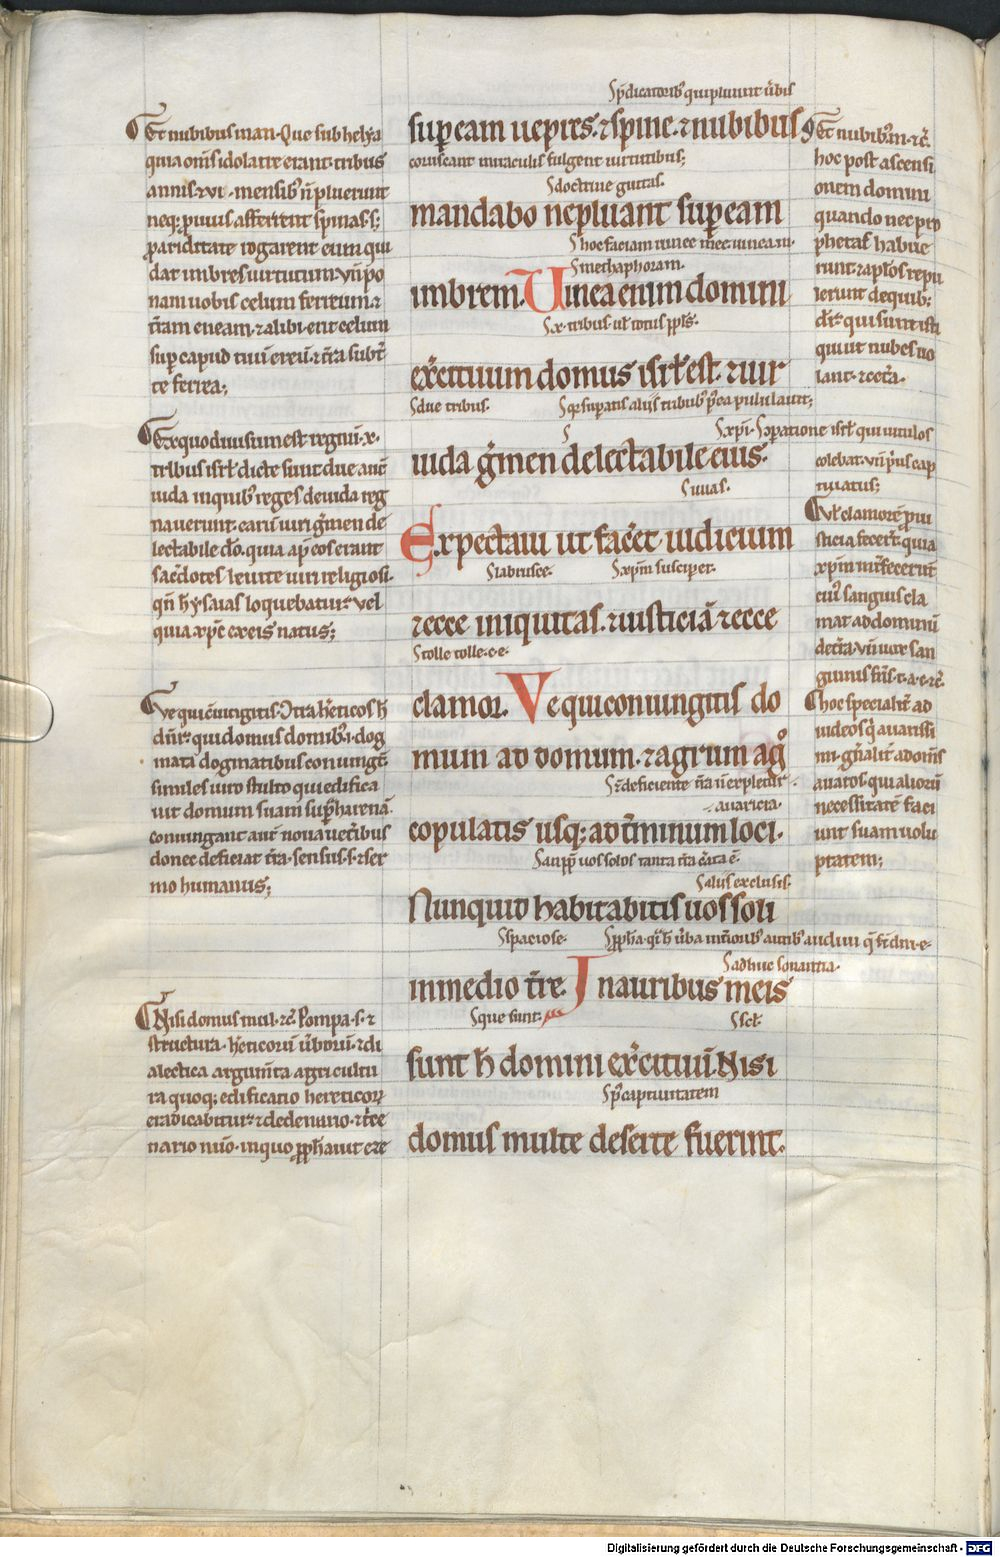 Et nubibus man. Que sub helẏa
quia om̄s idolatre erant. tribus
annis. ⁊ vi. mensib; n̄ pluerunt
neq; pruius afferrent spinas. s;
pro ariditate rogarent eum qui
dat imbres uirtutum. vn̄ po
nam uobis celum ferreum. ⁊
t̄ram eneam. ⁊ alibi. erit celum
super capud tuū ereū. ⁊ t̄ra subt̓
te ferrea;
Ex quo diuisum est regnū. x.
tribus isrl̓ dicte sunt due aut̄
iuda in quib; reges de iuda reg
nauerunt. earū uiri g̓men de
lectabile d̄o. quia ap̄ eos erant
sac̓dotes leuite uiri religiosi.
qn̄ hẏsaias loquebatur. vel
quia xp̄c ex eis natus;
Ve qui c̄iungitis. Ct̄ra h̓eticos h̄
dn̄r. qui domus domib; .i. dog
mata dogmatibus coniungt̄.
similes uiro stulto qui edifica
uit domum suam sup̓ harenā.
coniungant aut̄ noua uet̓ibus
donec deficiat t̄ra. sensus. s. ⁊ ser
mo humanus;
Nisi domus mul. ⁊c̄. Pompa. s. ⁊
structura. h̓eticorū u̓borū. ⁊ di
alectica argum̄ta agricultu
ra quoq; edificatio hereticoꝝ
eradicabitur. ⁊ de denario. ⁊ t̓ce
nario nūo. in quo ꝓph̄auit ere
S. p̄dicatorib; qui pluunt u̓bis
super eam uepres. ⁊ spine. ⁊ nubibus
coruscant miraculis fulgent uirtutibus;
S. doctrine guttas.
mandabo ne pluant super eam
S. hoc faciam nunc
S. methaphoram.
imbrem. Uinea enim domini
S. x. tribus. ul̓ totus ppl̄s.
exc̓ituum domus isrl̓ est. ⁊ uir
S. due tribus.
S. q̓ supatis aliis tribub; p̓ea pululauit;
S. xp̄i. S. opatione isrl̓ qui uitulos
iuda g̓men delectabile eius.
colebat. vn̄ p̓us cap
S. uuas.
tiuatus;
Expectaui ut fac̓et iudicium
S. labrusce.
S. xp̄m susciper.
⁊ ecce iniquitas. ⁊ iusticiā ⁊ ecce
S. tolle tolle. c. e.
clamor. Ve qui coniungitis do
mum ad domum. ⁊ agrum ag̊
S. deficiente t̄ra n̄ expletur
auaricia.
copulatis usq; ad t̓minum loci.
S. an ꝓpt̓ uos solos tanta t̄ra c̓ata ē.
S. aliis exclusis.
Nunquid habitabitis uos soli
S. spaciose.
S. ꝓph̄a. q̓ h̄ u̓ba int̓iorib; aurib; audiui q̄ s. dn̄i. e.
S. adhuc sonantia.
in medio t̄re. In auribus meis
S. que sunt.
S. scl̓.
sunt h̄ domini exc̓ituū. Nisi
S. p̓ captiuitatem
domus multe deserte fuerint.
Et nubib; m̄. ⁊c̄.
hoc post ascensi
onem domini
quando nec pro
phetas habue
runt. ⁊ ap̄los repu
lerunt de quib;
dr̄. qui sunt isti
qui ut nubes uo
lant. ⁊ cet̓a.
Ul̓ clamorē p̓ iu
sticia fecert̄. quia
xp̄m int̓fecerūt
cui̓ sanguis cla
mat ad dominū
de t̓ra. vn̄ uox san
guinis fr̄is. t. a. e. ⁊c̄.
hoc specialit̓ ad
iudeos q̓ auarissi
mi. gn̄alit̓ ad om̄s
auaros. qui aliorū
necessitatē faci
unt suam uolu
ptatem;
Digitalisierung gefördert durch die Deutsche Forschungsgemeinschaft - DFG